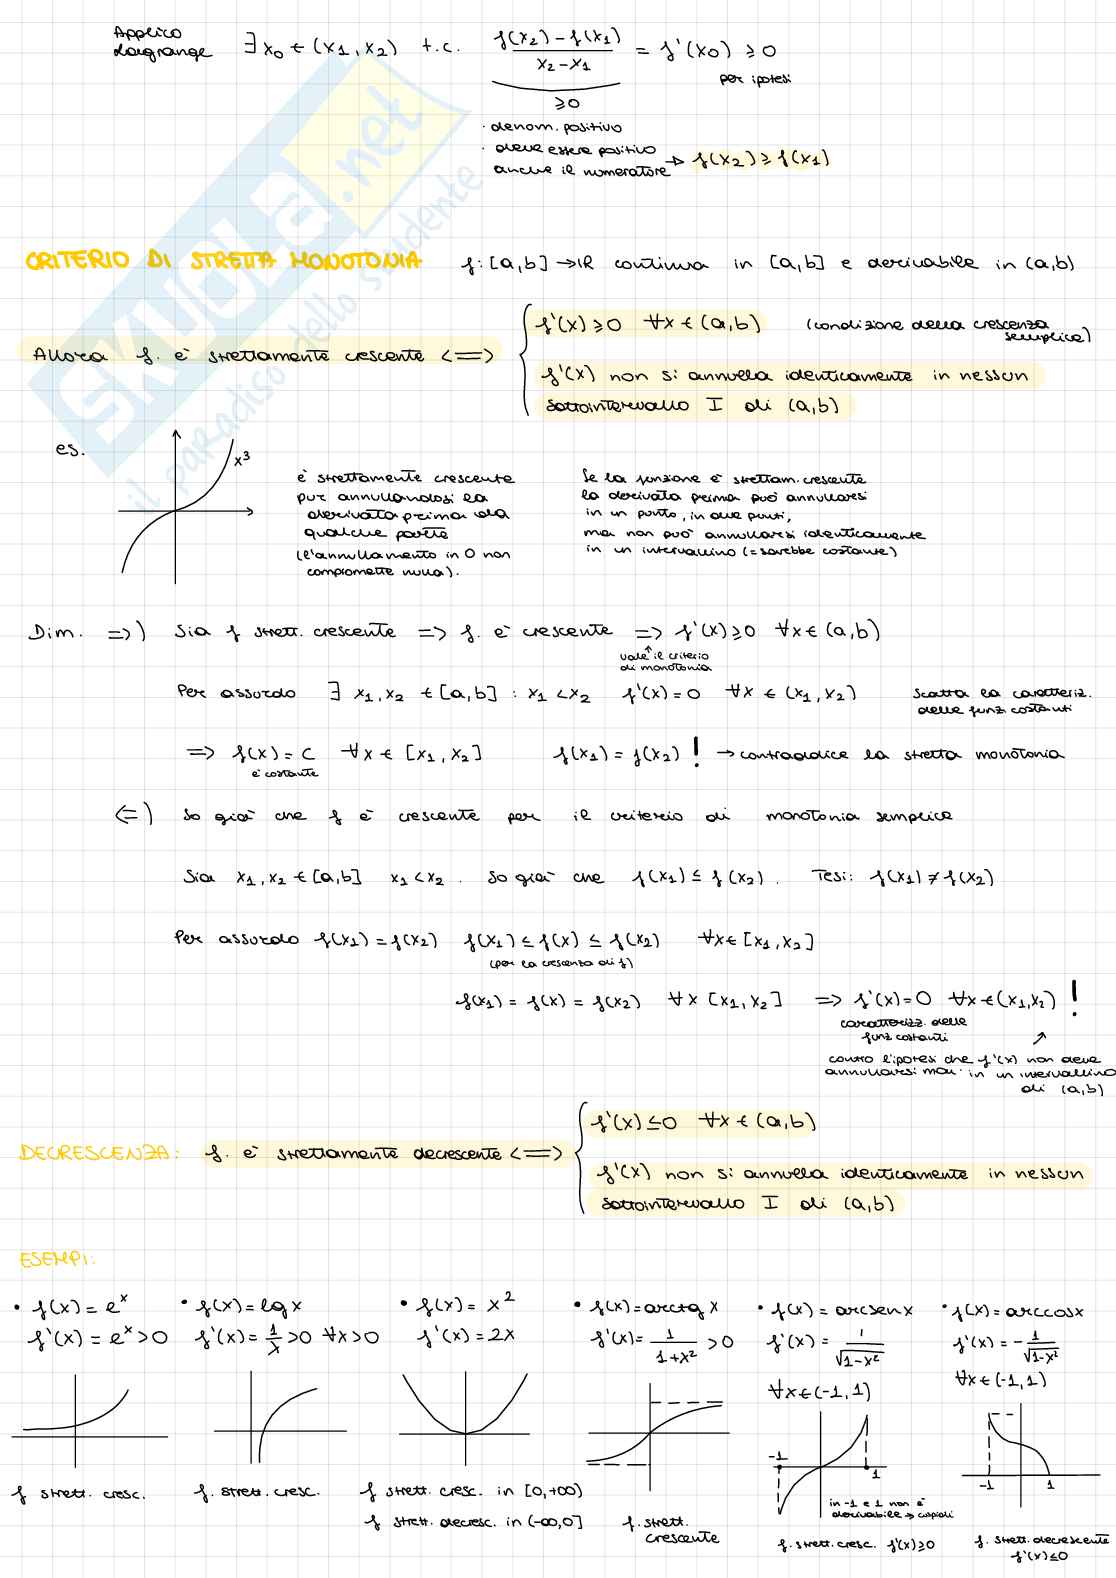 Applico
Lagrange ∃ x₀ ∈ (x₁, x₂) t.c. f(x₂) − f(x₁) / x₂ − x₁ = f'(x₀) ≥ 0
per ipotesi
≥ 0
· denom. positivo
· deve essere positivo
anche il numeratore → f(x₂) ≥ f(x₁)
CRITERIO DI STRETTA MONOTONIA f: [a,b] → ℝ continua in [a,b] e derivabile in (a,b)
Allora f. è strettamente crescente <=>
f'(x) ≥ 0 ∀x ∈ (a,b) (condizione della crescenza
semplice)
f'(x) non si annulla identicamente in nessun
sottointervallo I di (a,b)
es.
x³
è strettamente crescente
pur annullandosi la
derivata prima da
qualche parte
(l'annullamento in 0 non
compromette nulla).
Se la funzione è strettam. crescente
la derivata prima può annullarsi
in un punto, in due punti,
ma non può annullarsi identicamente
in un intervallino (= sarebbe costante)
Dim. =>) Sia f strett. crescente => f. è crescente => f'(x) ≥ 0 ∀x ∈ (a,b)
vale il criterio
di monotonia
Per assurdo ∃ x₁, x₂ ∈ [a,b] : x₁ < x₂ f'(x) = 0 ∀x ∈ (x₁, x₂) Scatta la caratteriz.
delle funz. costanti
=> f(x) = C ∀x ∈ [x₁, x₂] f(x₁) = f(x₂) ! → contraddice la stretta monotonia
è costante
<=) So già che f è crescente per il criterio di monotonia semplice
Sia x₁, x₂ ∈ [a,b] x₁ < x₂. So già che f(x₁) ≤ f(x₂). Tesi: f(x₁) ≠ f(x₂)
Per assurdo f(x₁) = f(x₂) f(x₁) ≤ f(x) ≤ f(x₂) ∀x ∈ [x₁, x₂]
(per la crescenza di f)
f(x₁) = f(x) = f(x₂) ∀x [x₁, x₂] => f'(x) = 0 ∀x ∈ (x₁, x₂) !
caratterizz. delle
funz costanti
contro l'ipotesi che f'(x) non deve
annullarsi mai in un intervallino
di (a,b)
DECRESCENZA: f. è strettamente decrescente <=>
f'(x) ≤ 0 ∀x ∈ (a,b)
f'(x) non si annulla identicamente in nessun
sottointervallo I di (a,b)
ESEMPI:
• f(x) = eˣ
f'(x) = eˣ > 0
f strett. cresc.
• f(x) = lg x
f'(x) = 1/x > 0 ∀x > 0
f. strett. cresc.
• f(x) = x²
f'(x) = 2x
f strett. cresc. in [0, +∞)
f strett. decresc. in (-∞, 0]
• f(x) = arctg x
f'(x) = 1/1+x² > 0
f. strett.
crescente
• f(x) = arcsen x
f'(x) = 1/√1-x²
∀x ∈ (-1, 1)
-1
1
in -1 e 1 non è
derivabile → cuspidi
f. strett. cresc. f'(x) ≥ 0
• f(x) = arccos x
f'(x) = - 1/√1-x²
∀x ∈ (-1, 1)
-1 1
f. strett. decrescente
f'(x) ≤ 0
SKUOLA.net
il paradiso dello studente